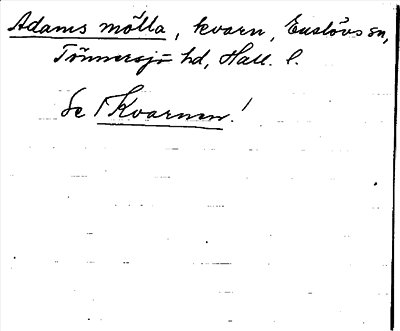 Adams mölla, kvarn, Enslövs sn,
Tönnersjö hd, Hall. l.
Se 1 Kvarnen!